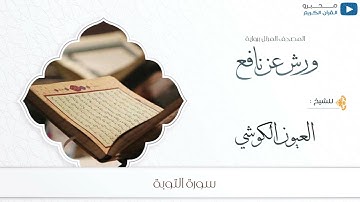 محبرو
القرآن الكريم
المصحف المرتل برواية
ورش عن نافع
للشيخ :
العيون الكوشي
سورة التوبة